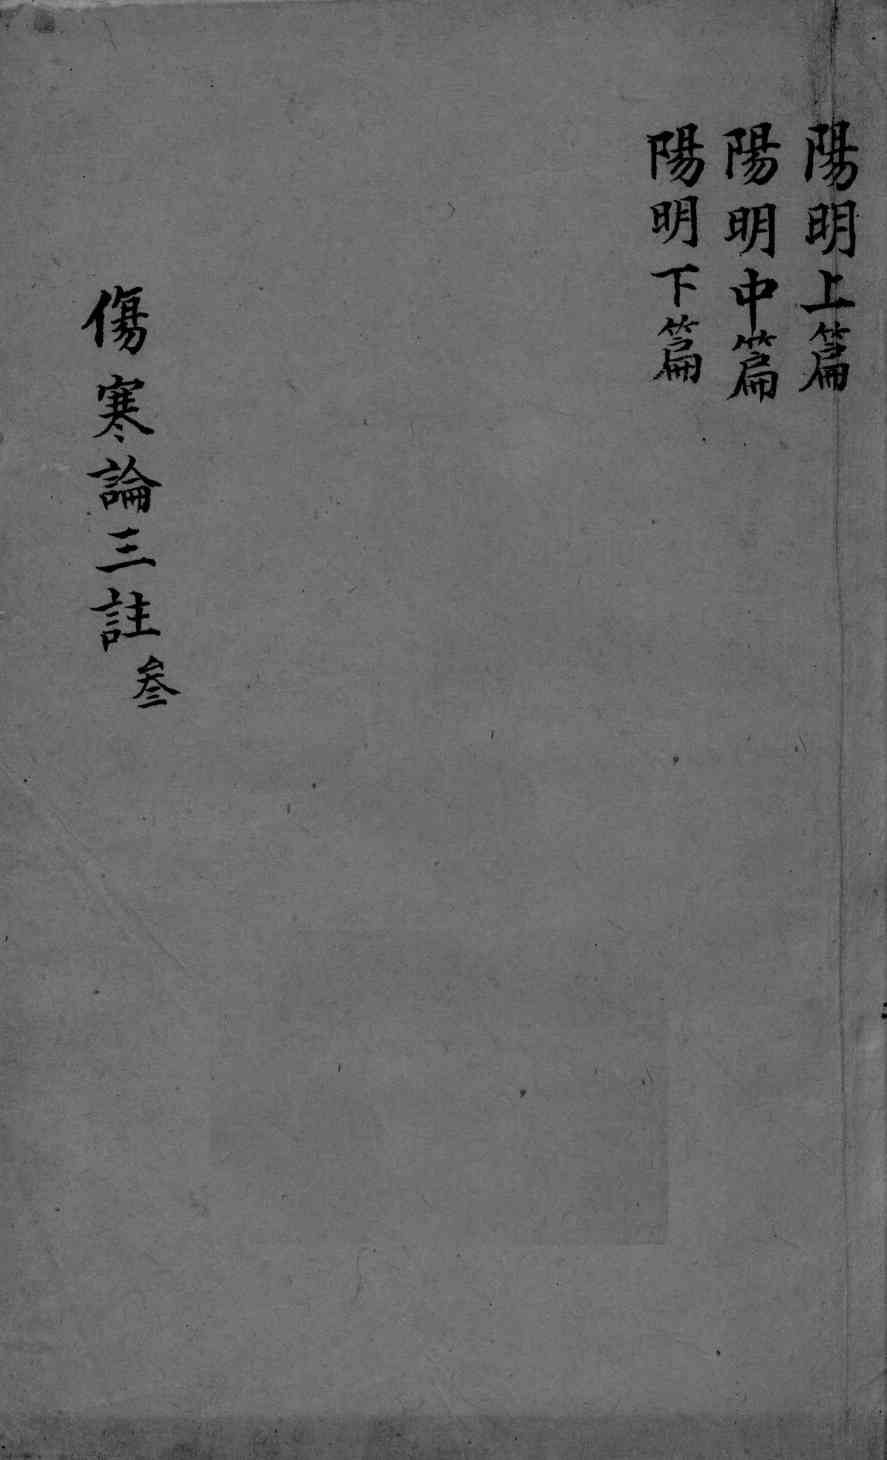 陽明上篇
陽明中篇
陽明下篇
傷寒論三註
叄